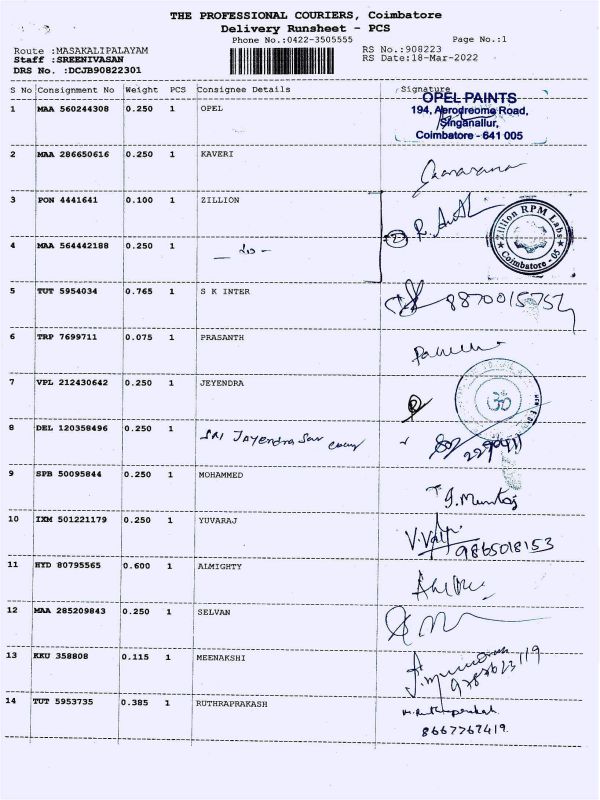 THE PROFESSIONAL COURIERS, Coimbatore
Delivery Runsheet - PCS
Phone No.:0422-3505555 Page No.:1
Route :MASAKALIPALAYAM RS No.:908223
Staff :SREENIVASAN RS Date:18-Mar-2022
DRS No. :DCJB90822301
S No Consignment No Weight PCS Consignee Details Signature
OPEL PAINTS
1 MAA 560244308 0.250 1 OPEL 194, Aerodreome Road,
Singanallur,
Coimbatore - 641 005
2 MAA 286650616 0.250 1 KAVERI
3 PON 4441641 0.100 1 ZILLION
Zillion RPM Labs
Coimbatore - 05
4 MAA 564442188 0.250 1 - do -
5 TUT 5954034 0.765 1 S K INTER
6 TRP 7699711 0.075 1 PRASANTH
7 VPL 212430642 0.250 1 JEYENDRA
ॐ
8 DEL 120358496 0.250 1 SRI Jayendra Sar
9 SPB 50095844 0.250 1 MOHAMMED
10 IXM 501221179 0.250 1 YUVARAJ
9865018153
11 HYD 80795565 0.600 1 ALMIGHTY
12 MAA 285209843 0.250 1 SELVAN
13 KKU 358808 0.115 1 MEENAKSHI
14 TUT 5953735 0.385 1 RUTHRAPRAKASH
8667767419.